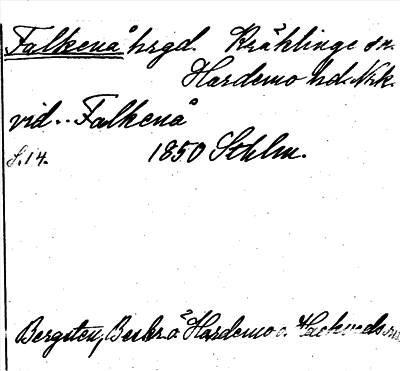 Falkenå hrgd. Kräklinge sn.
Hardemo hd. Nrk.
vid.. Falkenå
S. 14. 1850 Sthlm.
Bergsten, Beskr. ö. Hardemo o. Hackvads